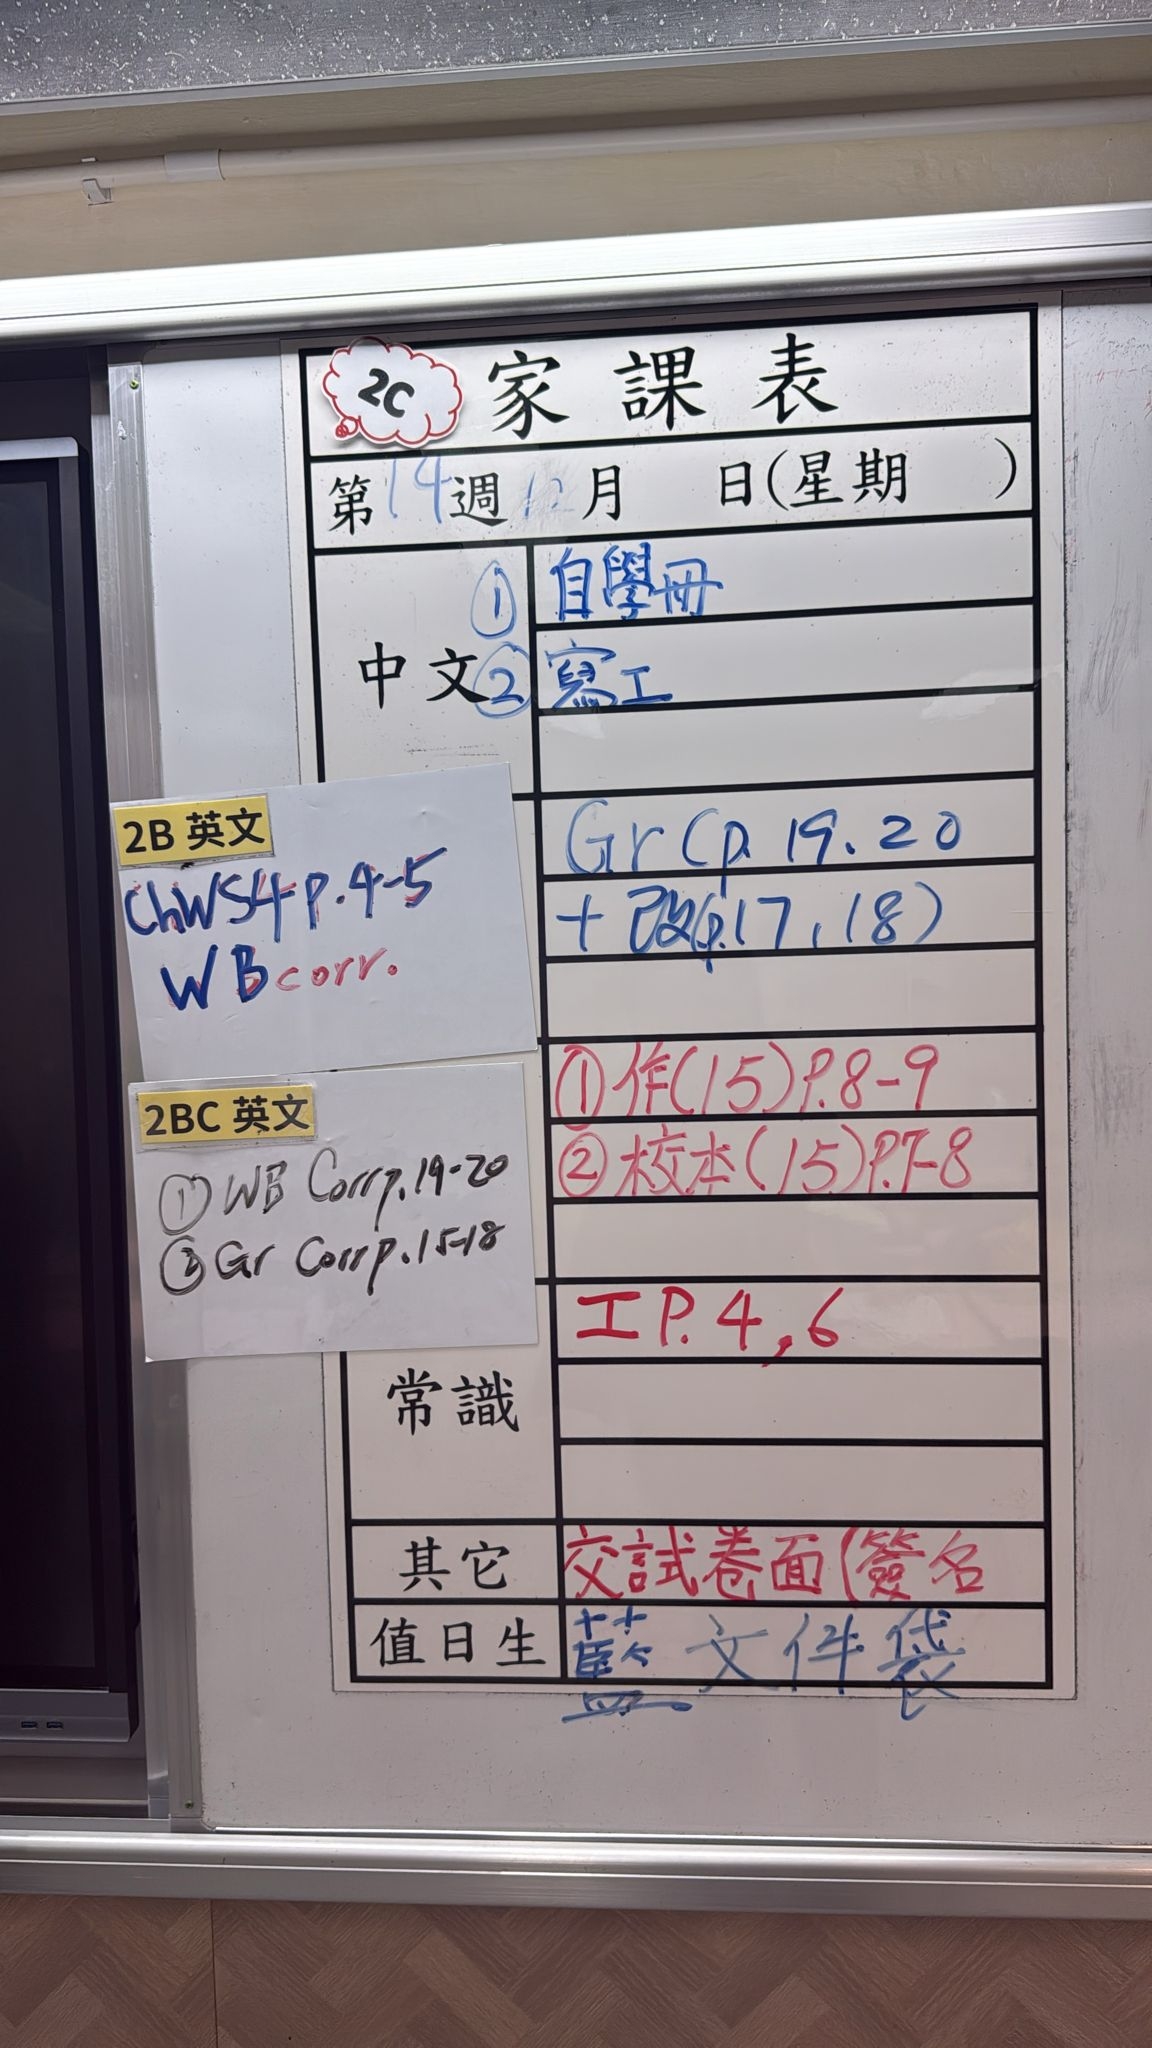 2C 家課表
第14週 12月 日(星期 )
中文
① 自學冊
② 寫工
Gr (p. 19. 20
+ 改(p.17, 18)
2B 英文
ChWS4 p.4-5
WB corr.
2BC 英文
① WB Corr p.19-20
② Gr Corr p.15-18
① 作(15)P.8-9
② 校本(15)P.7-8
常識
工 P. 4, 6
其它 交試卷面(簽名
值日生 藍文件袋